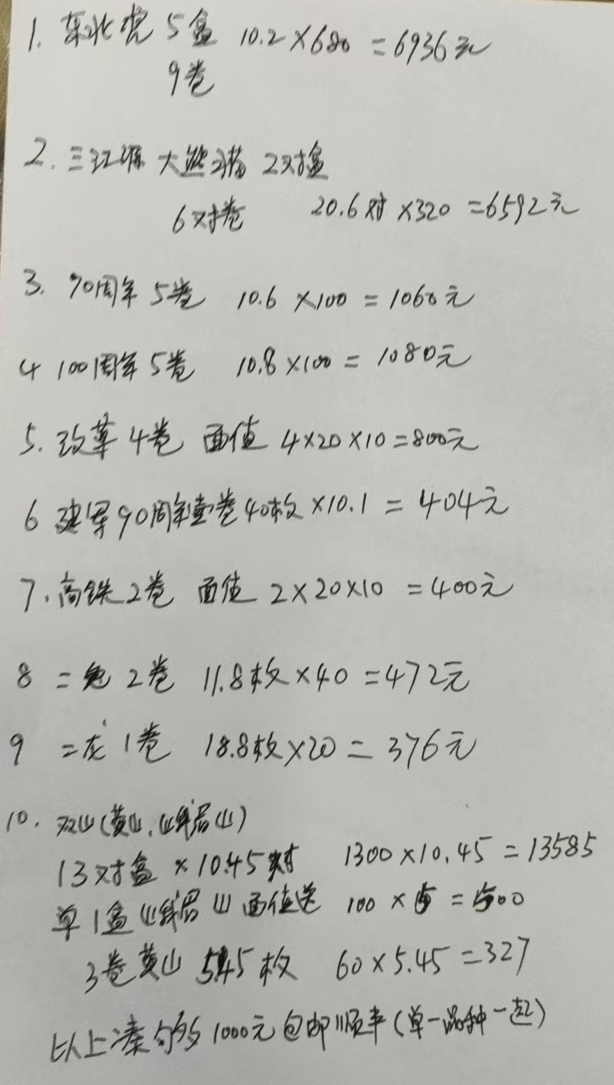 1. 东北虎 5盒 10.2×680=6936元
9卷
2. 三江源 大熊猫 2对盒
6对卷 20.6对×320=6592元
3. 70周年 5卷 10.6×100=1060元
4 100周年 5卷 10.8×100=1080元
5. 改革 4卷 面值 4×20×10=800元
6 建军90周年 卷 40枚×10.1=404元
7. 高铁 2卷 面值 2×20×10=400元
8 二兔 2卷 11.8枚×40=472元
9 二龙 1卷 18.8枚×20=376元
10. 双山(黄山.峨眉山)
13对盒×10.45对 1300×10.45=13585
单1盒峨眉山 面值送 100×5=500
3卷黄山 5.45枚 60×5.45=327
以上凑够1000元包邮顺丰(单一品种一起)